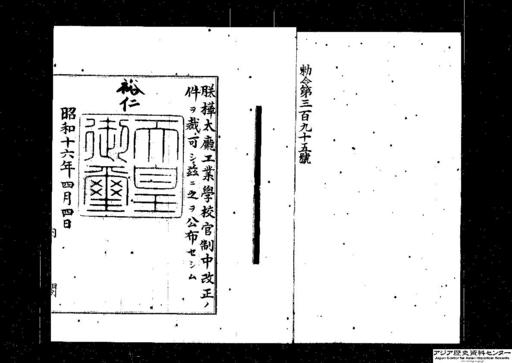 勅令第三百九十五號
朕樺太廳工業學校官制中改正ノ
件ヲ裁可シ茲ニ之ヲ公布セシム
裕仁
天皇
御璽
昭和十六年四月四日
内閣
アジア歴史資料センター
Japan Center for Asian Historical Records